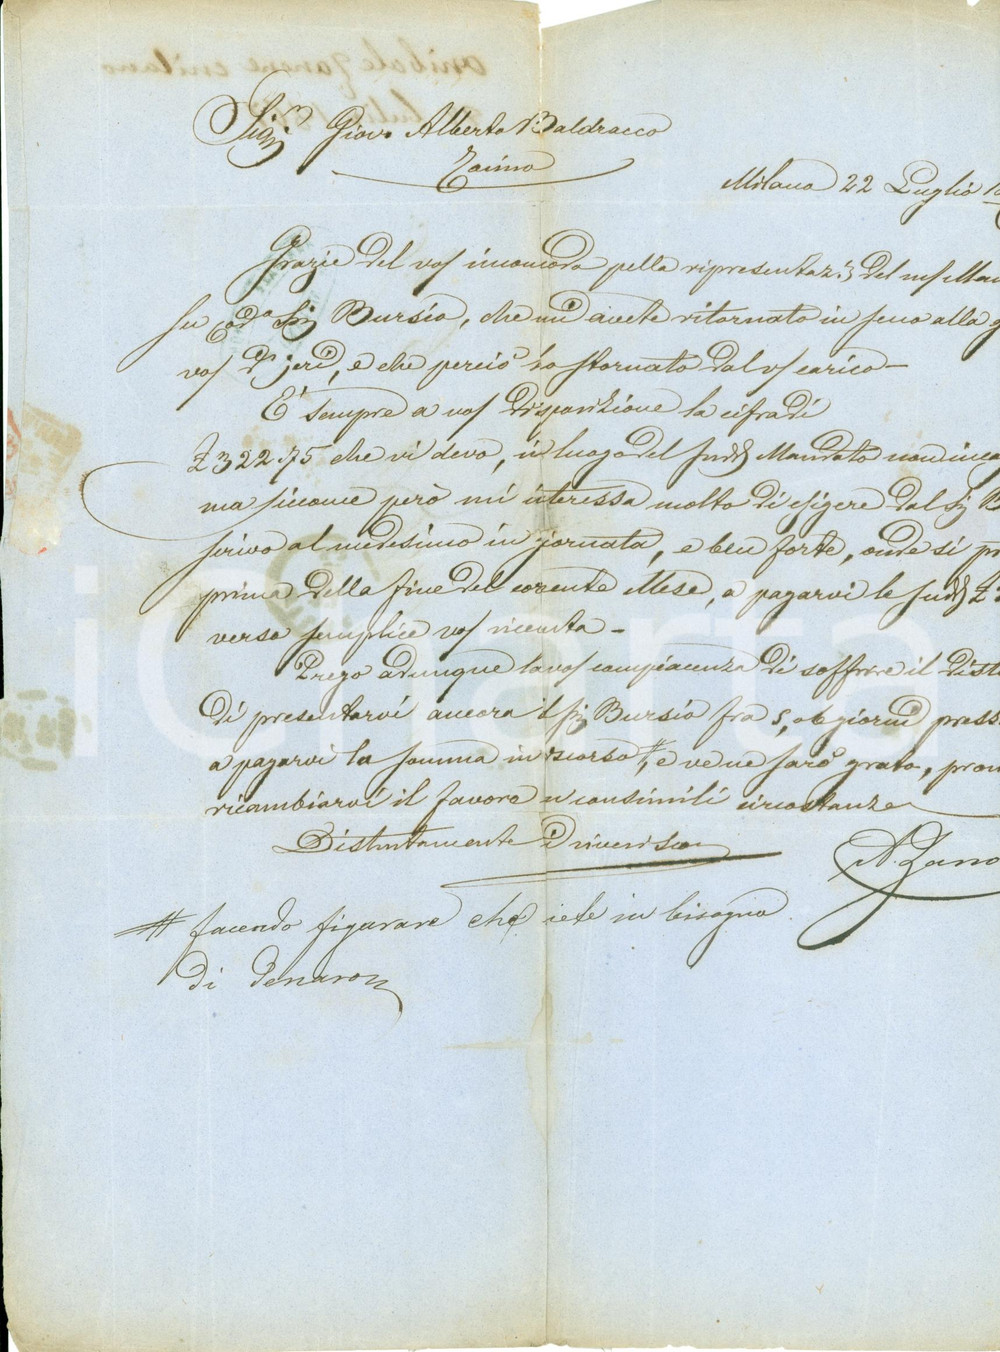 Sig.r Giov. Alberto Baldracco
Torino
Milano 22 Luglio
Grazie del vos incomodo pella ripresentaz.e del ns/ Man
su cod.a Sig Bursio, che mi avete ritornato in seno alla
vos/ d'jeri, e che perciò ho stornato dal vs/ carico -
E' sempre a vos/ disposizione la cifra di
£ 322.75 che vi devo, in luogo del sudd.o Mandato non inca
ma siccome però mi interessa molto di esigere dal Sig B
scrivo al medesimo in giornata, e ben forte, onde si
prima della fine del corrente Mese, a pagarvi le sudd. £
verso semplice vos/ ricevuta -
Prego adunque la vos/ compiacenza di soffrire il dist
di presentarvi ancora al Sig Bursio fra 5, o 6 giorni
a pagarvi la somma in discorso #, e ve ne sarò grato,
ricambiarvi il favore in consimili circostanze
Distintamente vi riverisco
A. Zano
# facendo figurare che siete in bisogno
di denaro
iCharta